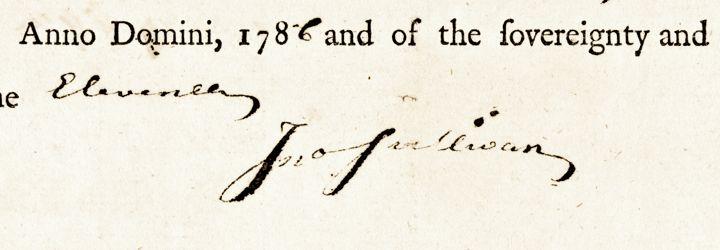 Anno Domini, 1786 and of the ſovereignty and
he Eleventh
Jno Sullivan